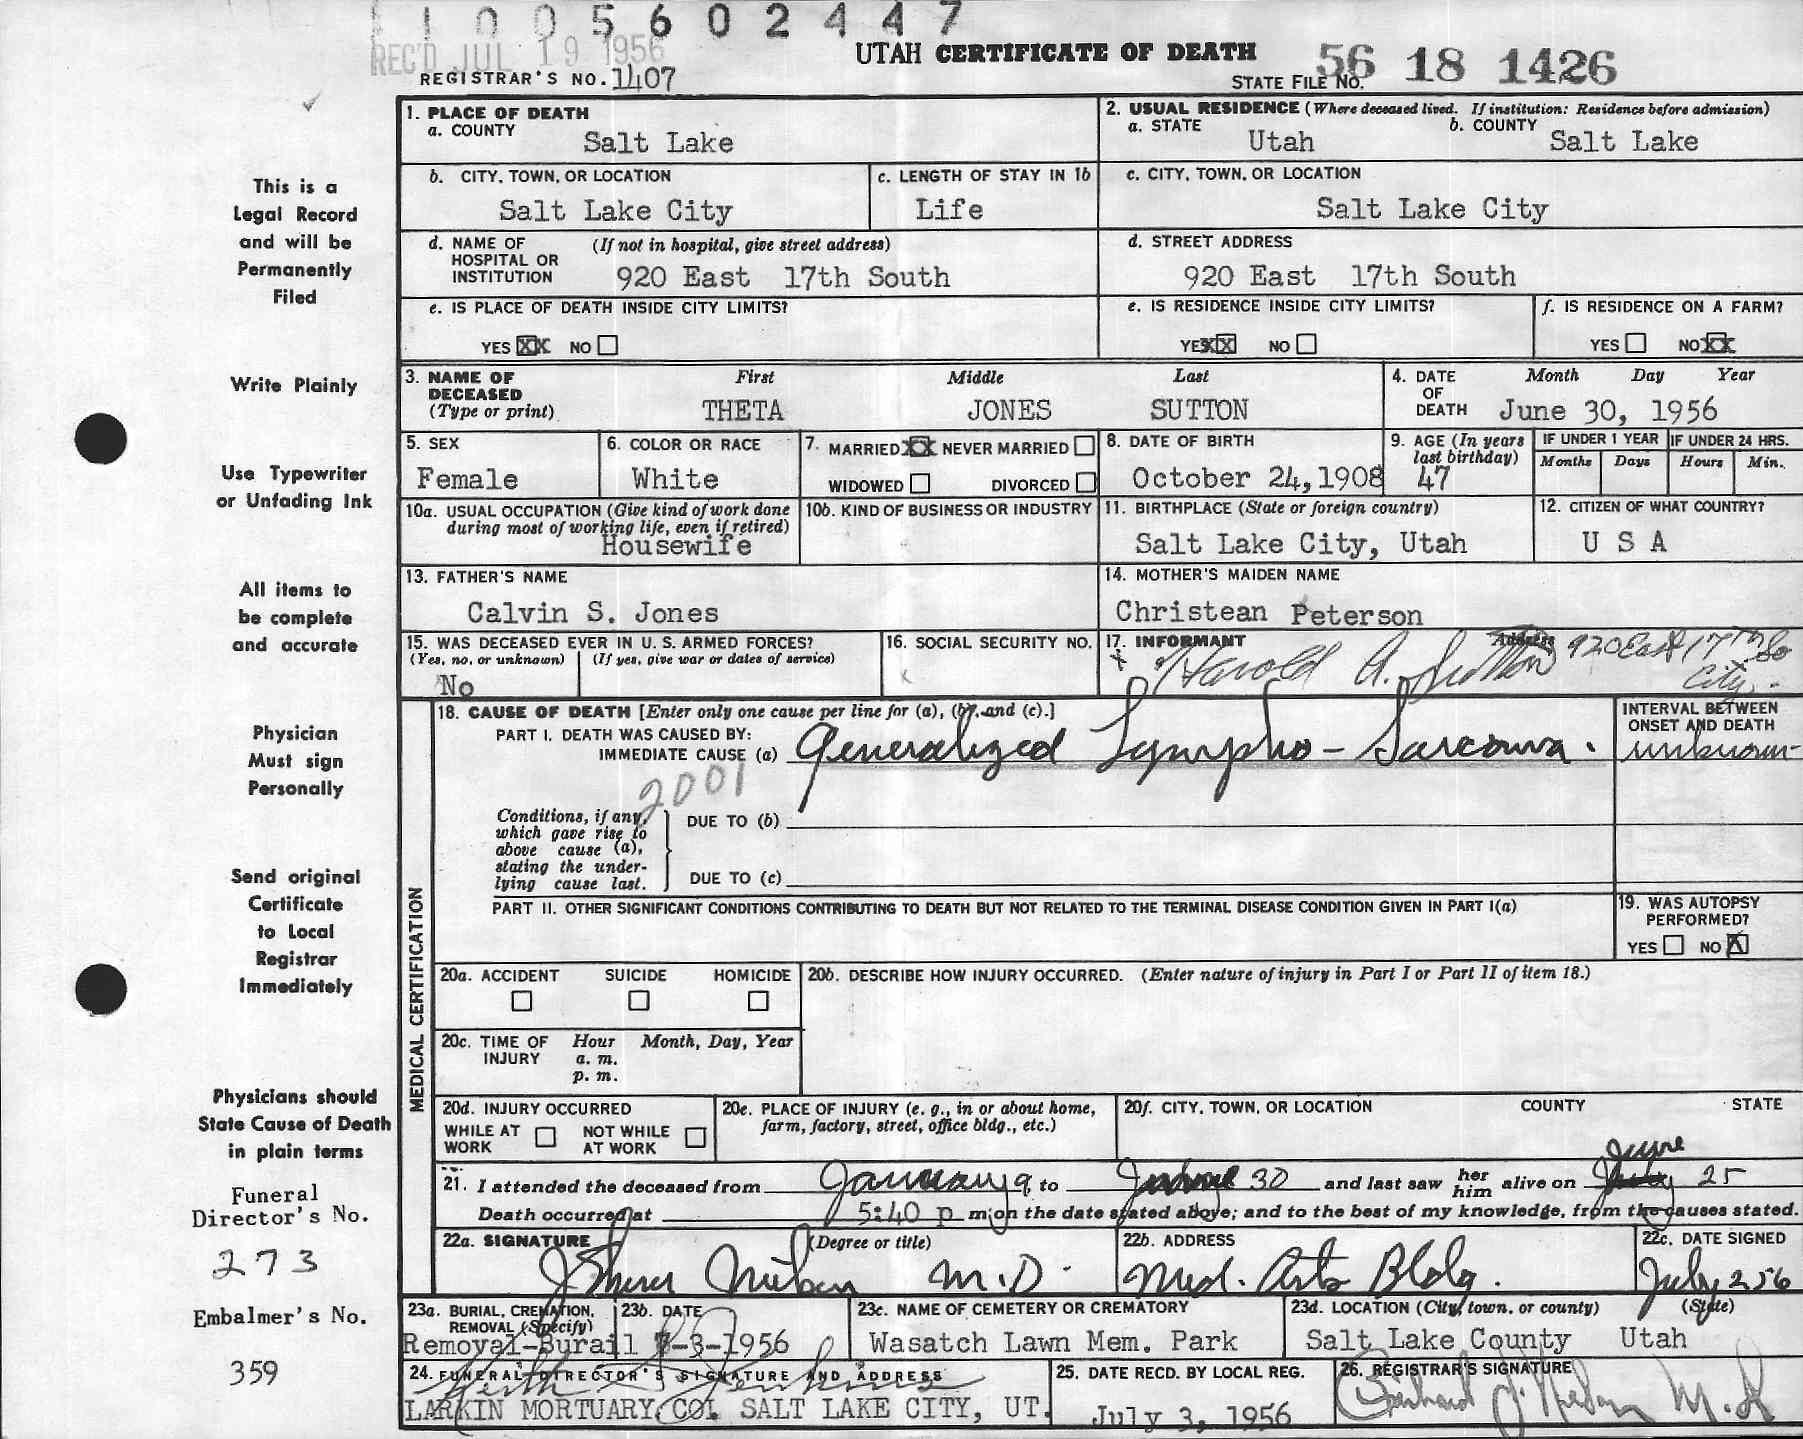 1005602447
REC'D JUL 19 1956
UTAH CERTIFICATE OF DEATH
REGISTRAR'S NO. 1407
STATE FILE NO. 56 18 1426
This is a
Legal Record
and will be
Permanently
Filed
Write Plainly
Use Typewriter
or Unfading Ink
All items to
be complete
and accurate
Physician
Must sign
Personally
Send original
Certificate
to Local
Registrar
Immediately
Physicians should
State Cause of Death
in plain terms
Funeral
Director's No.
273
Embalmer's No.
359
1. PLACE OF DEATH
a. COUNTY
Salt Lake
2. USUAL RESIDENCE (Where deceased lived. If institution: Residence before admission)
a. STATE Utah b. COUNTY Salt Lake
b. CITY, TOWN, OR LOCATION
Salt Lake City
c. LENGTH OF STAY IN 1b
Life
c. CITY, TOWN, OR LOCATION
Salt Lake City
d. NAME OF HOSPITAL OR INSTITUTION (If not in hospital, give street address)
920 East 17th South
d. STREET ADDRESS
920 East 17th South
e. IS PLACE OF DEATH INSIDE CITY LIMITS?
YES XX NO
e. IS RESIDENCE INSIDE CITY LIMITS?
YES XX NO
f. IS RESIDENCE ON A FARM?
YES NO XX
3. NAME OF DECEASED (Type or print)
First Middle Last
THETA JONES SUTTON
4. DATE OF DEATH
Month Day Year
June 30, 1956
5. SEX
Female
6. COLOR OR RACE
White
7. MARRIED XX NEVER MARRIED
WIDOWED DIVORCED
8. DATE OF BIRTH
October 24, 1908
9. AGE (In years last birthday)
47
IF UNDER 1 YEAR IF UNDER 24 HRS.
Months Days Hours Min.
10a. USUAL OCCUPATION (Give kind of work done during most of working life, even if retired)
Housewife
10b. KIND OF BUSINESS OR INDUSTRY
11. BIRTHPLACE (State or foreign country)
Salt Lake City, Utah
12. CITIZEN OF WHAT COUNTRY?
U S A
13. FATHER'S NAME
Calvin S. Jones
14. MOTHER'S MAIDEN NAME
Christean Peterson
15. WAS DECEASED EVER IN U. S. ARMED FORCES?
(Yes, no, or unknown) (If yes, give war or dates of service)
No
16. SOCIAL SECURITY NO.
17. INFORMANT Address
Harold A. Sutton 920 East 17th So
City.
MEDICAL CERTIFICATION
18. CAUSE OF DEATH [Enter only one cause per line for (a), (b), and (c).]
INTERVAL BETWEEN ONSET AND DEATH
PART I. DEATH WAS CAUSED BY:
IMMEDIATE CAUSE (a) Generalized Lympho-Sarcoma. unknown
2001
Conditions, if any, which gave rise to above cause (a), stating the underlying cause last.
DUE TO (b)
DUE TO (c)
PART II. OTHER SIGNIFICANT CONDITIONS CONTRIBUTING TO DEATH BUT NOT RELATED TO THE TERMINAL DISEASE CONDITION GIVEN IN PART I(a)
19. WAS AUTOPSY PERFORMED?
YES NO X
20a. ACCIDENT SUICIDE HOMICIDE
20b. DESCRIBE HOW INJURY OCCURRED. (Enter nature of injury in Part I or Part II of item 18.)
20c. TIME OF INJURY Hour a. m. p. m. Month, Day, Year
20d. INJURY OCCURRED
WHILE AT WORK NOT WHILE AT WORK
20e. PLACE OF INJURY (e. g., in or about home, farm, factory, street, office bldg., etc.)
20f. CITY, TOWN, OR LOCATION COUNTY STATE
21. I attended the deceased from January 9 to June 30 and last saw her him alive on June 25
Death occurred at 5:40 p m; on the date stated above; and to the best of my knowledge, from the causes stated.
22a. SIGNATURE (Degree or title)
M.D.
22b. ADDRESS
Med. Arts Bldg.
22c. DATE SIGNED
July 2 56
23a. BURIAL, CREMATION, REMOVAL (Specify)
Removal-Burail
23b. DATE
7-3-1956
23c. NAME OF CEMETERY OR CREMATORY
Wasatch Lawn Mem. Park
23d. LOCATION (City, town, or county) (State)
Salt Lake County Utah
24. FUNERAL DIRECTOR'S SIGNATURE AND ADDRESS
Keith Jenkins
LARKIN MORTUARY CO. SALT LAKE CITY, UT.
25. DATE RECD. BY LOCAL REG.
July 3, 1956
26. REGISTRAR'S SIGNATURE